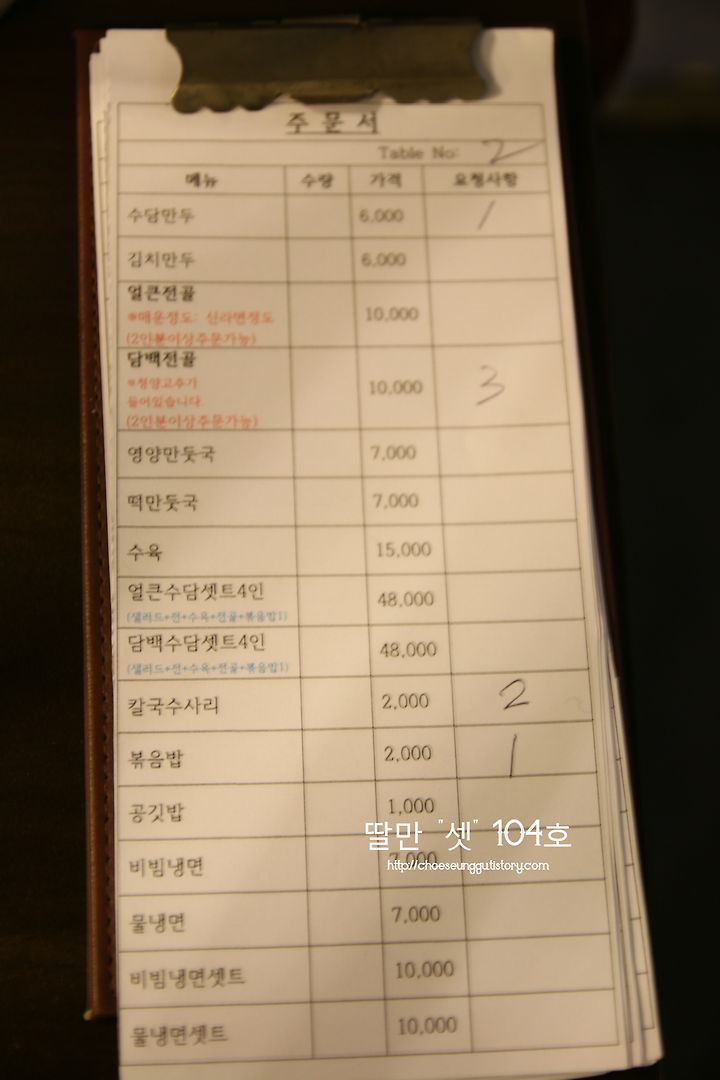 주 문 서
Table No: 2
메뉴 수량 가격 요청사항
수담만두 6,000 1
김치만두 6,000
얼큰전골
*매운정도: 신라면정도 10,000
(2인분이상주문가능)
담백전골
*청양고추가 10,000 3
들어있습니다.
(2인분이상주문가능)
영양만둣국 7,000
떡만둣국 7,000
수육 15,000
얼큰수담셋트4인 48,000
(샐러드+전+수육+전골+볶음밥1)
담백수담셋트4인 48,000
(샐러드+전+수육+전골+볶음밥1)
칼국수사리 2,000 2
볶음밥 2,000 1
공깃밥 1,000
딸만 "셋" 104호
비빔냉면 7,000
http://choeseunggutistory.com
물냉면 7,000
비빔냉면셋트 10,000
물냉면셋트 10,000